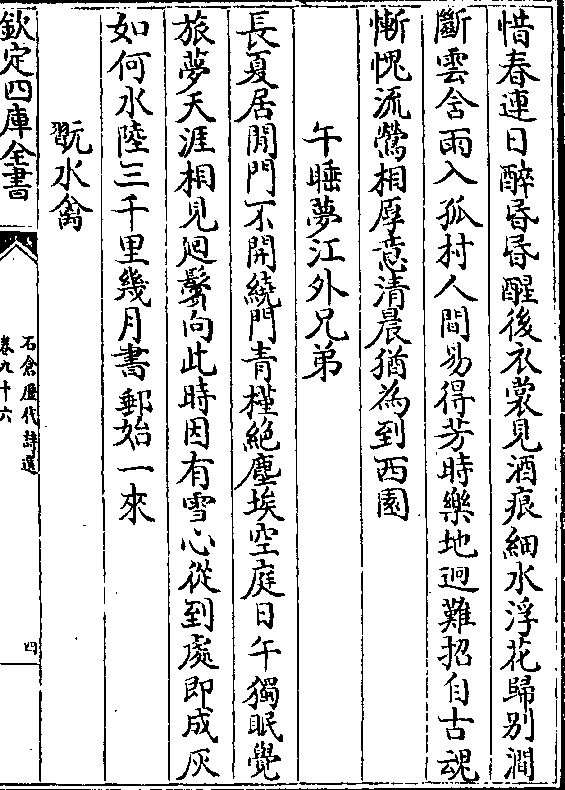 惜春連日醉昏昏醒後衣裳見酒痕細水浮花歸别澗
斷雲含雨入孤村人間易得芳時樂地迥難招自古魂
慚愧流鶯相厚意清晨猶為到西園
午睡夢江外兄弟
長夏居閒門不開繞門青槿絶塵埃空庭日午獨眠覺
旅夢天涯相見迴鬢向此時因有雪心從到處即成灰
如何水陸三千里幾月書郵始一來
翫水禽
欽定四庫全書
石倉歷代詩選
卷九十六
四